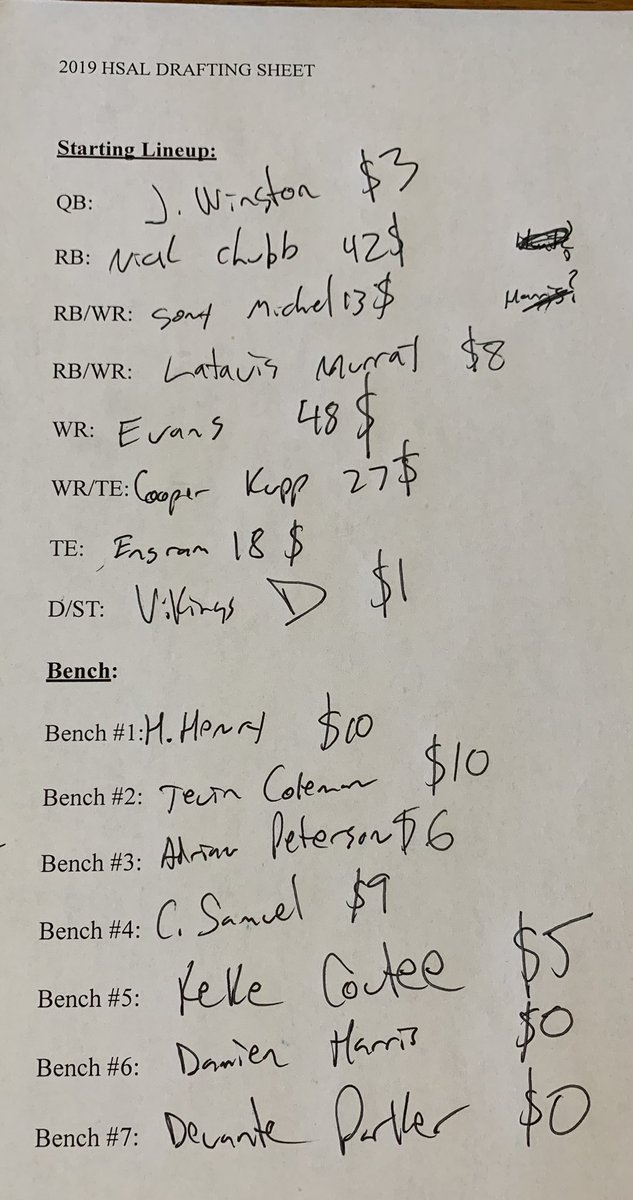 2019 HSAL DRAFTING SHEET
Starting Lineup:
QB: J. Winston $3
RB: Nick Chubb 42$
RB/WR: Sony Michel 13$ Harris?
RB/WR: Latavis Murray $8
WR: Evans 48$
WR/TE: Cooper Kupp 27$
TE: Engram 18$
D/ST: Vikings D $1
Bench:
Bench #1: H. Henry $10
Bench #2: Tevin Coleman $10
Bench #3: Adrian Peterson $6
Bench #4: C. Samuel $9
Bench #5: KeKe Coutee $5
Bench #6: Damien Harris $0
Bench #7: Devante Parker $0